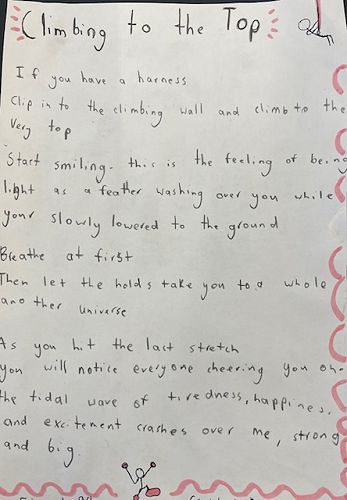 Climbing to the Top
If you have a harness
Clip in to the climbing wall and climb to the
very top
Start smiling- this is the feeling of being
light as a feather washing over you while
your slowly lowered to the ground
Breathe at first
Then let the holds take you to a whole
another universe
As you hit the last stretch
you will notice everyone cheering you on-
the tidal wave of tiredness, happines,
and excitement crashes over me, strong
and big.